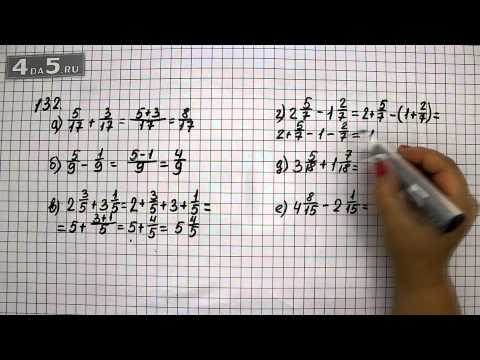 4DA5.RU
132.
а) 5/17 + 3/17 = (5+3)/17 = 8/17
б) 5/9 - 1/9 = (5-1)/9 = 4/9
в) 2 3/5 + 3 1/5 = 2 + 3/5 + 3 + 1/5 =
= 5 + (3+1)/5 = 5 + 4/5 = 5 4/5
г) 2 5/7 - 1 2/7 = 2 + 5/7 - (1 + 2/7) =
2 + 5/7 - 1 - 2/7 = 1
д) 3 5/18 + 1 7/18 =
е) 4 8/15 - 2 1/15 =